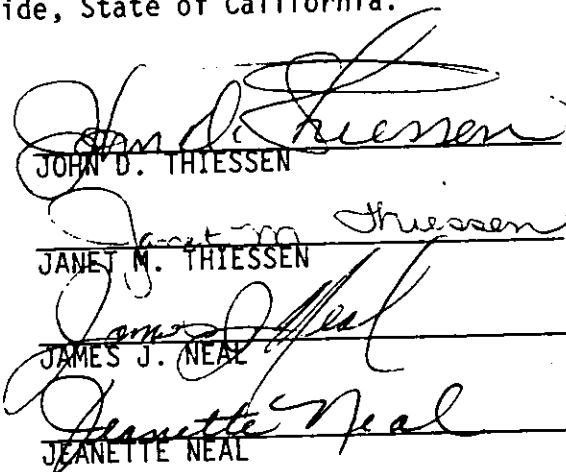 ide, State of California.
John D. Thiessen
JOHN D. THIESSEN
Janet M Thiessen
JANET M. THIESSEN
James J Neal
JAMES J. NEAL
Jeanette Neal
JEANETTE NEAL